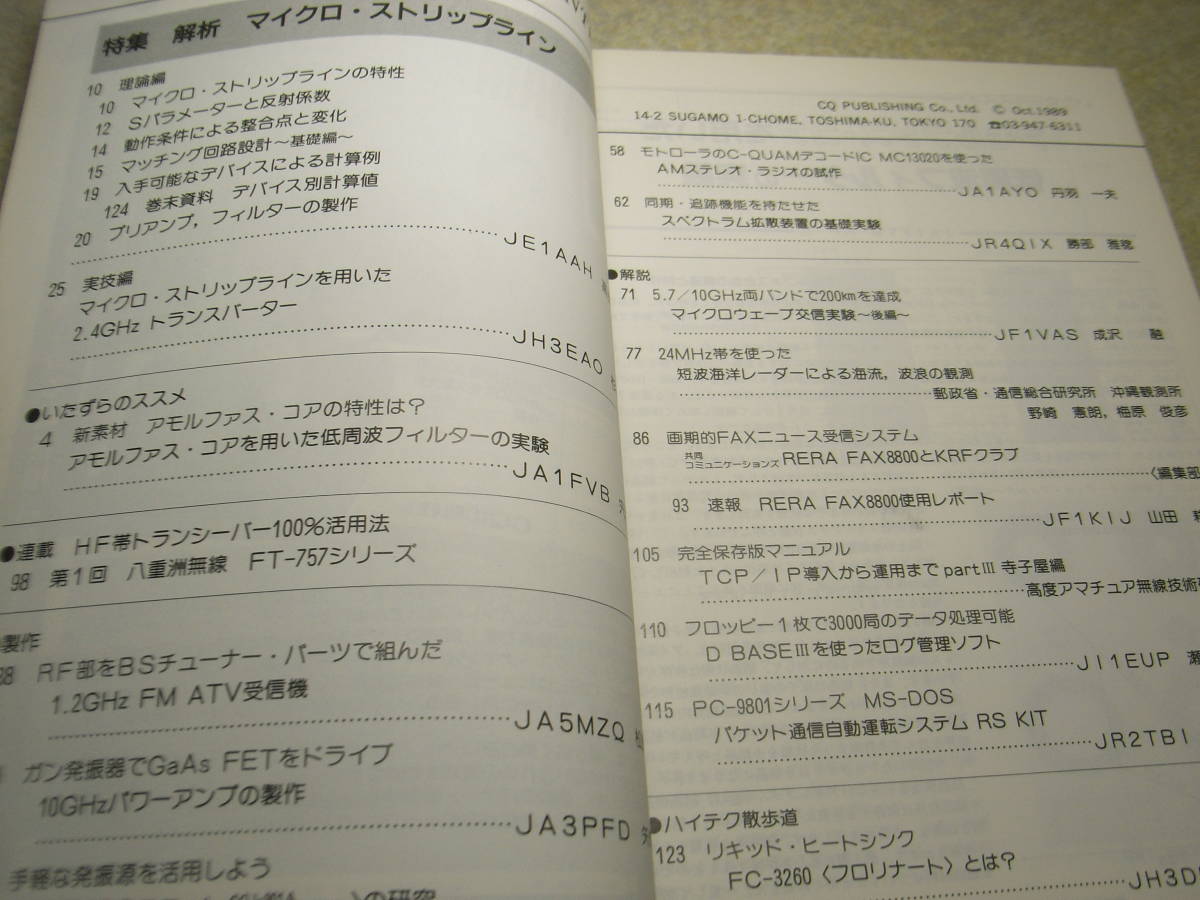 特集 解析 マイクロ・ストリップライン
10 理論編
10 マイクロ・ストリップラインの特性
12 Sパラメーターと反射係数
14 動作条件による整合点と変化
15 マッチング回路設計〜基礎編〜
19 入手可能なデバイスによる計算例
124 巻末資料 デバイス別計算値
20 プリアンプ，フィルターの製作
JE1AAH
25 実技編
マイクロ・ストリップラインを用いた
2.4GHz トランスバーター
JH3EAO
●いたずらのススメ
4 新素材 アモルファス・コアの特性は？
アモルファス・コアを用いた低周波フィルターの実験
JA1FVB
●連載 HF帯トランシーバー100％活用法
98 第1回 八重洲無線 FT-757シリーズ
製作
38 RF部をBSチューナー・パーツで組んだ
1.2GHz FM ATV受信機
JA5MZQ
ガン発振器でGaAs FETをドライブ
10GHzパワーアンプの製作
JA3PFD
手軽な発振源を活用しよう
の研究
CQ PUBLISHING Co., Ltd. © Oct.1989
14-2 SUGAMO 1-CHOME, TOSHIMA-KU, TOKYO 170 ☎03-947-6311
58 モトローラのC-QUAMデコードIC MC13020を使った
AMステレオ・ラジオの試作
JA1AYO 丹羽 一夫
62 同期・追跡機能を持たせた
スペクトラム拡散装置の基礎実験
JR4QIX 勝部 雅穂
●解説
71 5.7／10GHz両バンドで200㎞を達成
マイクロウェーブ交信実験〜後編〜
JF1VAS 成沢 融
77 24MHz帯を使った
短波海洋レーダーによる海流，波浪の観測
郵政省・通信総合研究所 沖縄観測所
野崎 憲朗，梅原 俊彦
86 画期的FAXニュース受信システム
共同コミュニケーションズ RERA FAX8800とKRFクラブ
〈編集部
93 速報 RERA FAX8800使用レポート
JF1KIJ 山田
105 完全保存版マニュアル
TCP／IP導入から運用まで partⅢ 寺子屋編
高度アマチュア無線技術
110 フロッピー1枚で3000局のデータ処理可能
D BASEⅢを使ったログ管理ソフト
JI1EUP 瀬
115 PC-9801シリーズ MS-DOS
パケット通信自動運転システム RS KIT
JR2TBI
●ハイテク散歩道
123 リキッド・ヒートシンク
FC-3260〈フロリナート〉とは？
JH3D